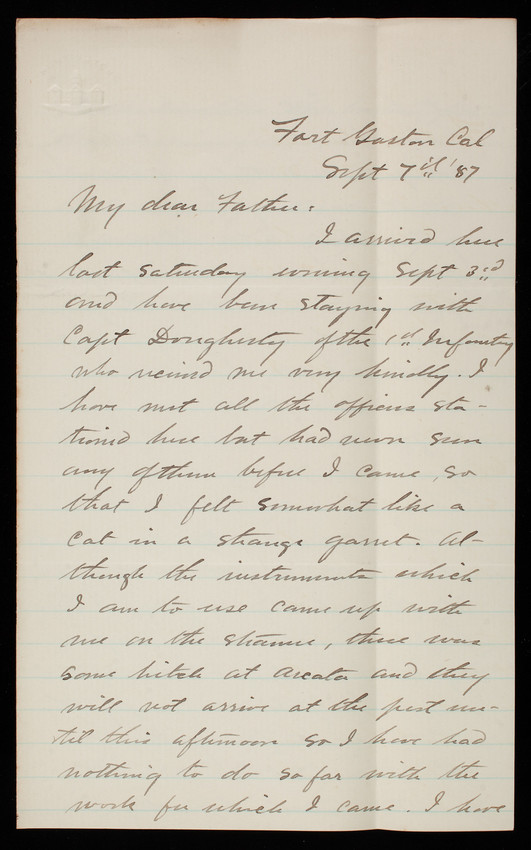 Fort Gaston Cal
Sept 7th '87
My dear Father:
I arrived here
last Saturday evening Sept 3rd
and have been staying with
Capt Dougherty of the 1st Infantry
who received me very kindly. I
have met all the officers sta-
tioned here but had never seen
any of them before I came, so
that I felt somewhat like a
cat in a strange garret. Al-
though the instruments which
I am to use came up with
me on the steamer, there was
some hitch at Arcata and they
will not arrive at the post un-
til this afternoon so I have had
nothing to do so far with the
work for which I came. I have